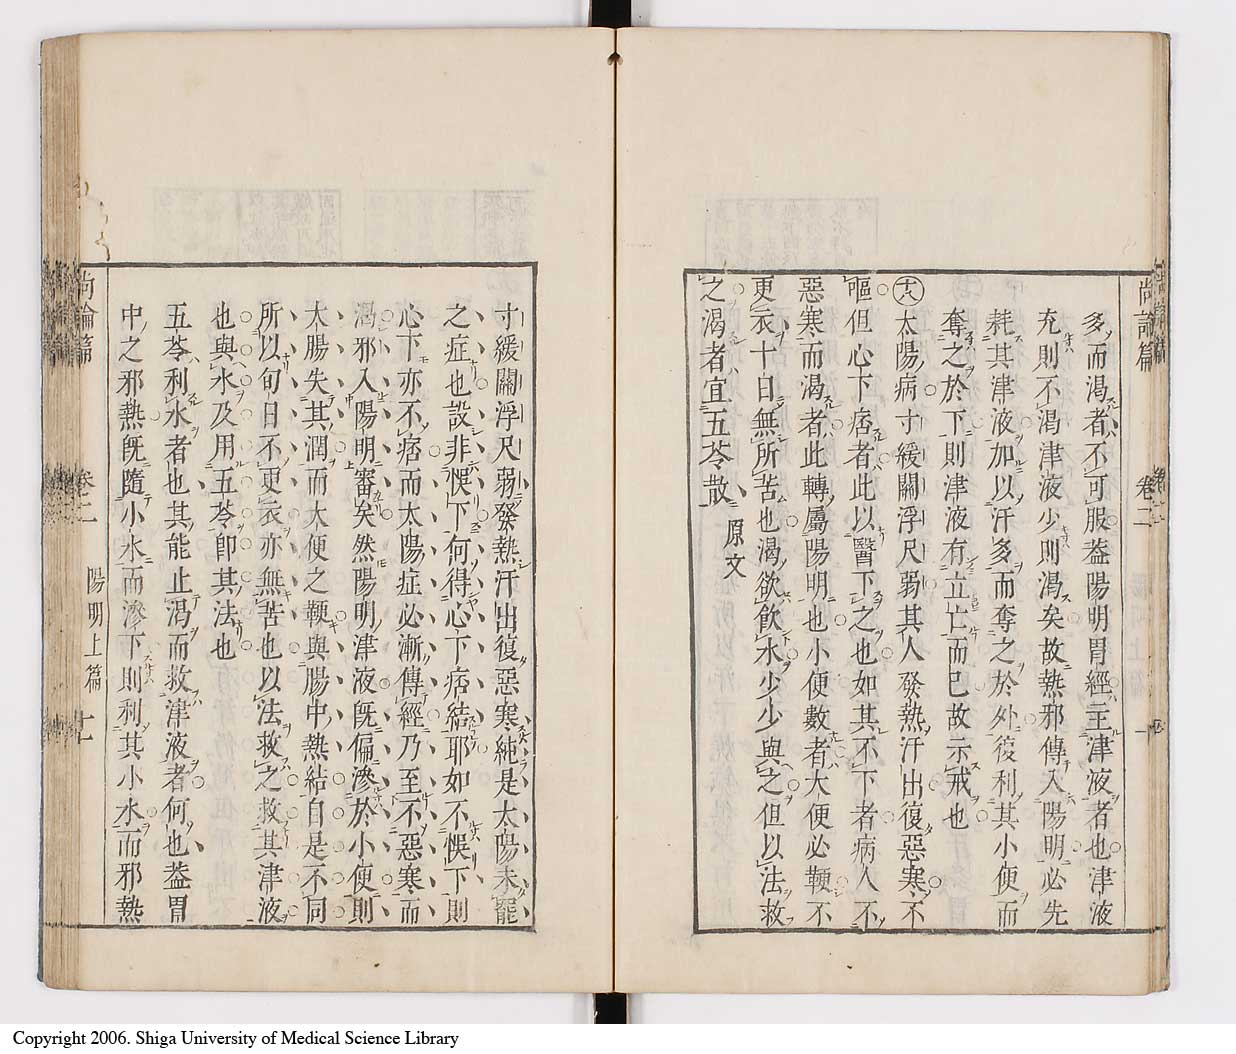 多而渇者不可服葢陽明胃經主津液者也津液
充則不渇津液少則渇矣故熱邪傳入陽明必先
耗其津液加以汗多而奪之於外復利其小便而
奪之於下則津液有立亡而已故示戒也
十八太陽病寸緩關浮尺弱其人發熱汗出復惡寒不
嘔但心下痞者此以醫下之也如其不下者病人不
惡寒而渇者此轉屬陽明也小便數者大便必鞕不
更衣十日無所苦也渇欲飲水少少與之但以法救
之渇者宜五苓散 原文
尚論篇 卷二
寸緩關浮尺弱發熱汗出復惡寒純是太陽未罷
之症也設非悞下何得心下痞結耶如不悞下則
心下亦不痞而太陽症必漸傳經乃至不惡寒而
渇邪入陽明審矣然陽明津液旣偏滲於小便則
大腸失其潤而大便之鞕與腸中熱結自是不同
所以旬日不更衣亦無苦也以法救之救其津液
也與水及用五苓卽其法也
五苓利水者也其能止渇而救津液者何也葢胃
中之邪熱旣隨小水而滲下則利其小水而邪熱
尚論篇 卷二 陽明上篇 十一
Copyright 2006. Shiga University of Medical Science Library